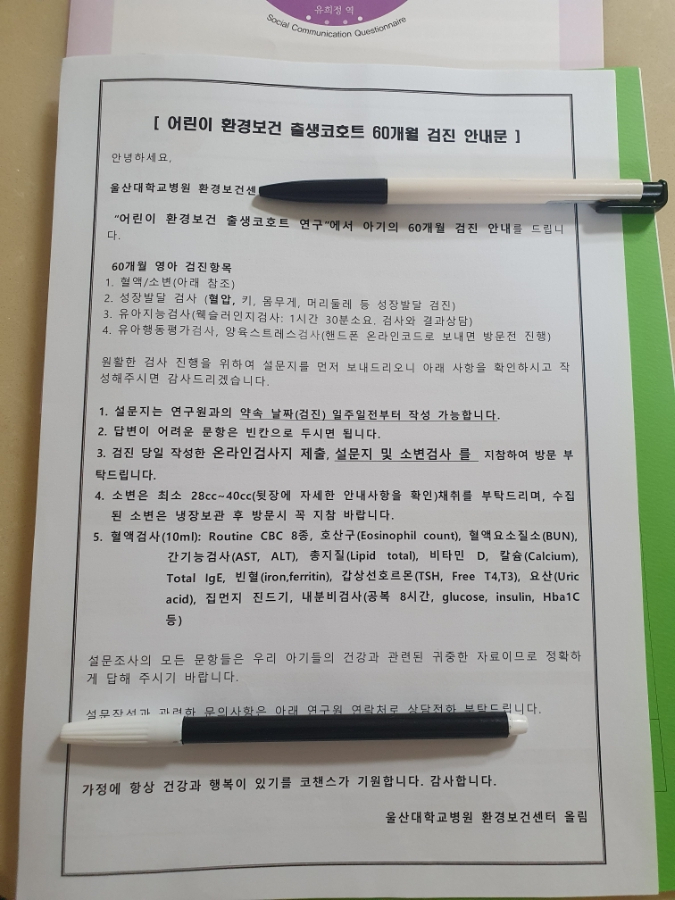 유희정 역
Social Communication Questionnaire
[ 어린이 환경보건 출생코호트 60개월 검진 안내문 ]
안녕하세요,
울산대학교병원 환경보건센
"어린이 환경보건 출생코호트 연구"에서 아기의 60개월 검진 안내를 드립니
다.
60개월 영아 검진항목
1. 혈액/소변(아래 참조)
2. 성장발달 검사 (혈압, 키, 몸무게, 머리둘레 등 성장발달 검진)
3. 유아지능검사(웩슬러인지검사: 1시간 30분소요. 검사와 결과상담)
4. 유아행동평가검사, 양육스트레스검사(핸드폰 온라인코드로 보내면 방문전 진행)
원활한 검사 진행을 위하여 설문지를 먼저 보내드리오니 아래 사항을 확인하시고 작
성해주시면 감사드리겠습니다.
1. 설문지는 연구원과의 약속 날짜(검진) 일주일전부터 작성 가능합니다.
2. 답변이 어려운 문항은 빈칸으로 두시면 됩니다.
3. 검진 당일 작성한 온라인검사지 제출, 설문지 및 소변검사 를 지참하여 방문 부
탁드립니다.
4. 소변은 최소 28cc~40cc(뒷장에 자세한 안내사항을 확인)채취를 부탁드리며, 수집
된 소변은 냉장보관 후 방문시 꼭 지참 바랍니다.
5. 혈액검사(10ml): Routine CBC 8종, 호산구(Eosinophil count), 혈액요소질소(BUN),
간기능검사(AST, ALT), 총지질(Lipid total), 비타민 D, 칼슘(Calcium),
Total IgE, 빈혈(iron,ferritin), 갑상선호르몬(TSH, Free T4,T3), 요산(Uric
acid), 집먼지 진드기, 내분비검사(공복 8시간, glucose, insulin, Hba1C
등)
설문조사의 모든 문항들은 우리 아기들의 건강과 관련된 귀중한 자료이므로 정확하
게 답해 주시기 바랍니다.
설문작성과 관련한 문의사항은 아래 연구원 연락처로 상담전화 부탁드립니다.
가정에 항상 건강과 행복이 있기를 코챈스가 기원합니다. 감사합니다.
울산대학교병원 환경보건센터 올림